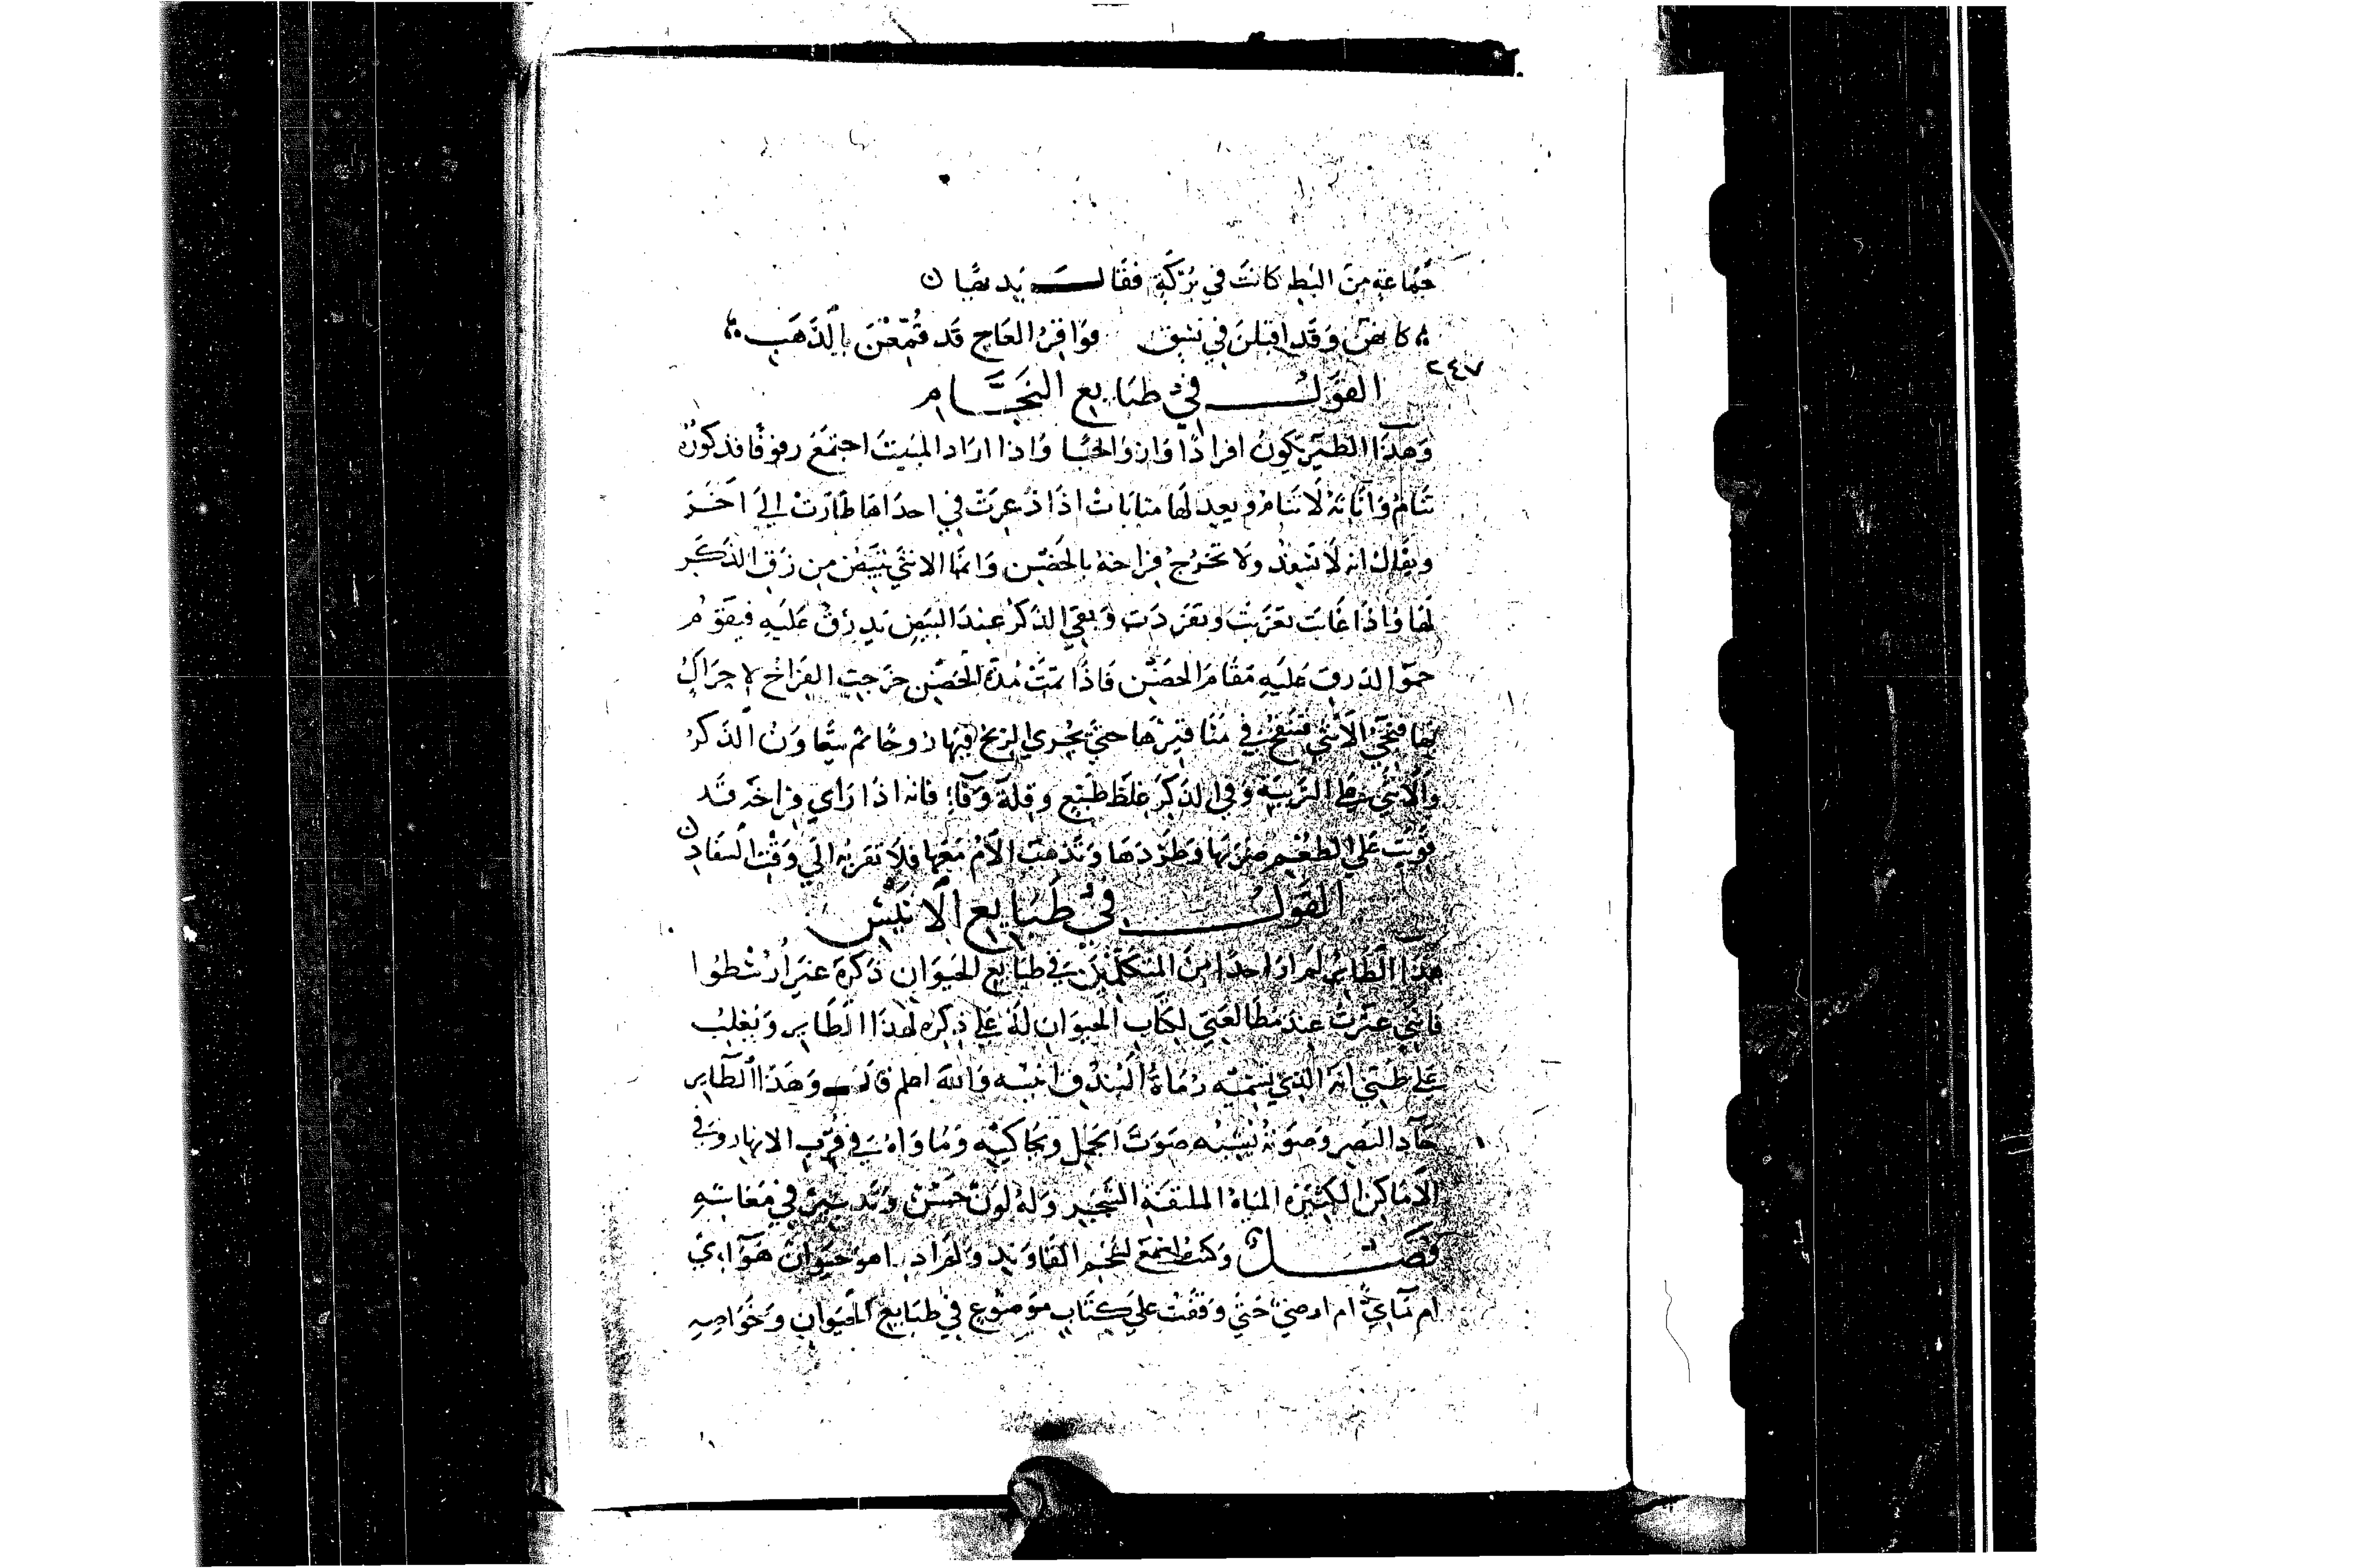 جَمَاعة مِنَ البَط كانَت في بُرْكَةٍ فقَال بَديهًا ن
كانهن وَقَد اقبلنَ في نَسَق مَوَاقِرُ العَاج قَد قُمِّعْنَ بِالذَّهَبِ
٢٤٧
القَوْلُ في طبَايع النحَّام
وَهذَا الطيَر يَكونُ افرادًا وَازوَاجًا وَاذا ارَاد المبَيت اجتمَعَ رفوفًا فذكورُه
تنَامُ وَانَاثه لَا تنَامُ ويعد لهَا مبَايَات اذَا ذعِرَتْ في احدَاهَا طَارَتْ إلي اخَرَ
ويقَالُ انه لَا يَسْفدُ ولَا تخرُجُ فِرَاخهُ بالحَضْن وَانمَا الانثي تَبيَضُ من زق الذَكَرِ
لهَا وَاذَا غَابَت تغرّبَتْ وتفَرّدَت وَبقي الذكرُ عِندَ البَيضِ يَذرُقُ عَليَهِ فيَقوْمُ
حَموّ الذَرق عَليَهِ مقَامَ الحضْن فَاذَا تمتْ مُدّة الحَضْن خرَجت الفِرَاخُ لا حِرَاكَ
بَها فتجيُ الأنثي فتَنفُخ في مَنَاقيرهَا حتيّ يجْري الريح فيهَا رُوحًا ثم يتعَاوَنُ الذكرُ
وَالانثي علي التَربيَة وَفي الذكَرِ غلظ طَبْع وقلة وَفَاءٍ فانه اذَا رَاي فِرَاخَه قَد
قَوِيَت عَلي الطعم ضَربهَا وَطرَدَهَا وَتذهَبُ الأم مَعَهَا فلَا تقربُه الي وَقت السفاد ن
القَوْلُ في طَبَايع الأنيَس
هذا الطَاير لم ار احَدًا منَ المتكلمّينَ في طبَايع الحيَوَان ذكرهَ غيَر ارُسْطوُا
فانني عَثرتُ عِندَ مطَالعَتي لكتَاب الحيوَان لَهُ عَلي ذِكرِه لهذَا الطَاير وَيَغلِبُ
عَلي ظني انهَ الذي يُسَميّه رُمَاةُ البُندُقِ انيسَه وَالله اعلم قال وَهَذَا الطَاير
حَاد البَصر وَصَوتهُ يُشبهُ صَوتَ الجَمَل ويحَاكيْه وَمَاوَاهُ في قُرْبِ الانهار وَفي
الاَمَاكِن الكثيرَة المياه الملتفةِ الشجَر وَلَهُ لَوْنٌ حَسَنٌ وَتَدبيرٌ في مَعَاشهِ
فَصْلٌ وَكنتُ اسْمَعُ لحْمِ القَاوَند وَلم ادر اهو حَيَوَانٌ هَوَاءِيٌ
ام مَآيٌ ام ارضيٌ حَتيّ وَقَفْت علي كتَابٍ مَوضوُع في طبَايع الحيَوَانِ وَخَوَاصِهِ